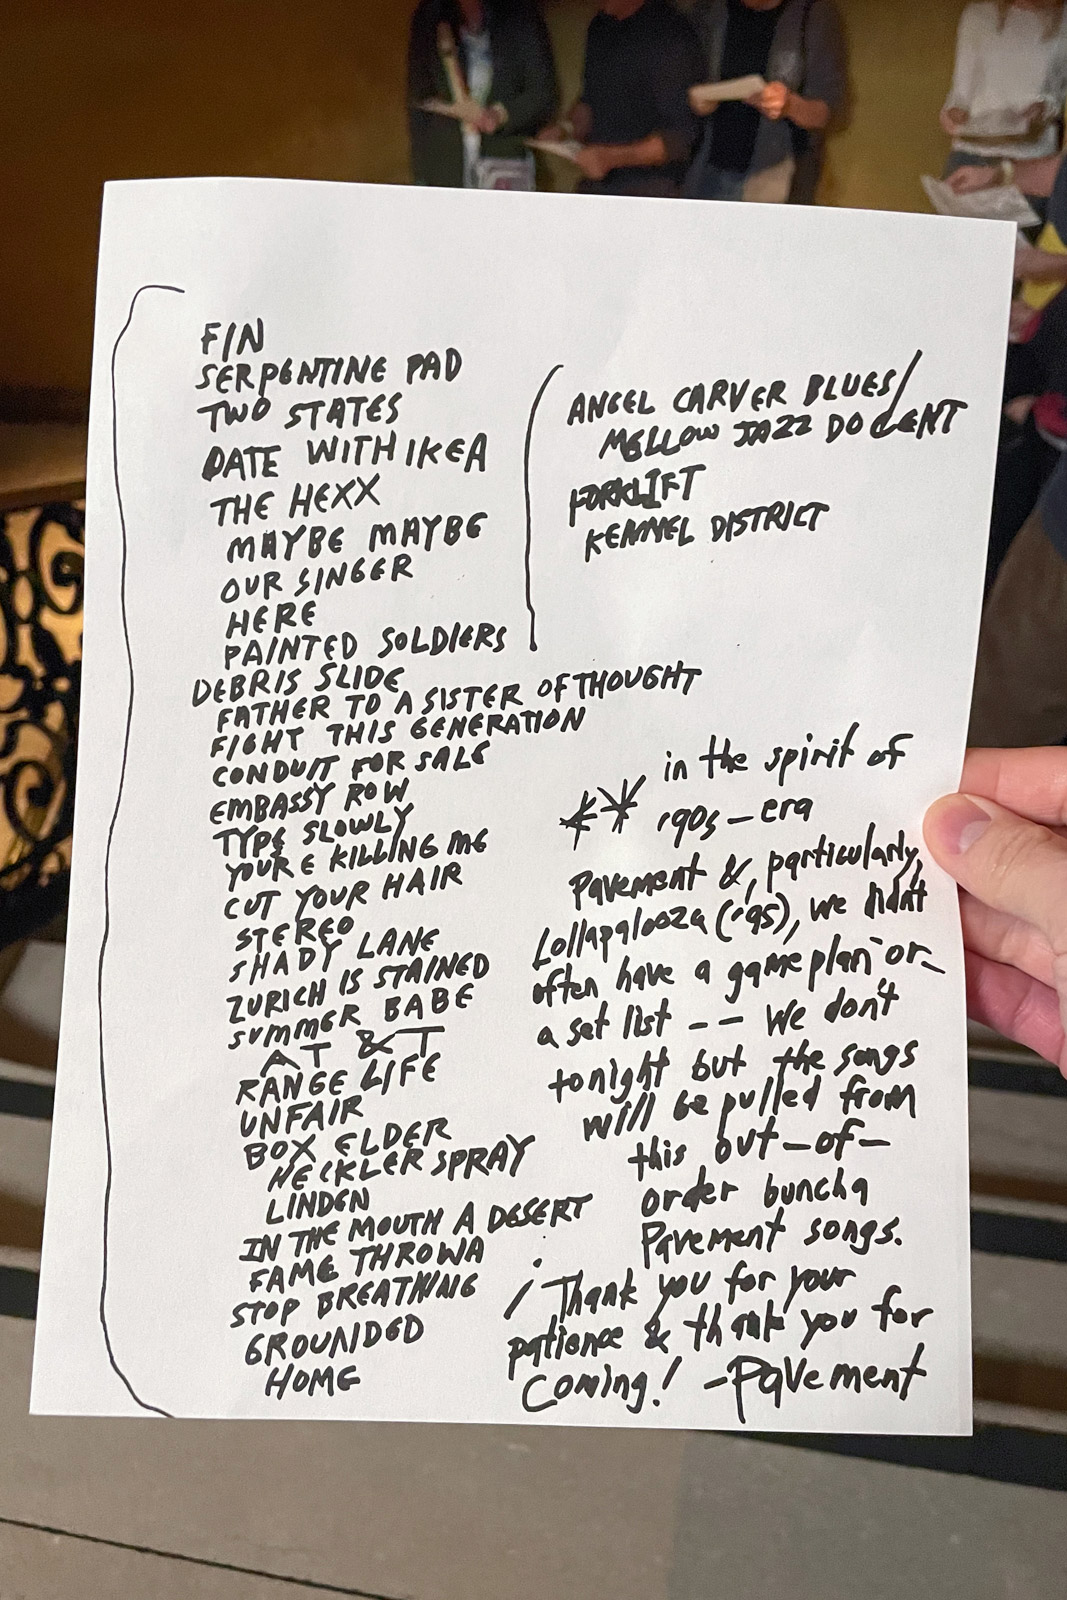 FIN
SERPENTINE PAD
TWO STATES
DATE WITH IKEA
THE HEXX
MAYBE MAYBE
OUR SINGER
HERE
PAINTED SOLDIERS
DEBRIS SLIDE
FATHER TO A SISTER OF THOUGHT
FIGHT THIS GENERATION
CONDUIT FOR SALE
EMBASSY ROW
TYPE SLOWLY
YOUR E KILLING ME
CUT YOUR HAIR
STEREO
SHADY LANE
ZURICH IS STAINED
SUMMER BABE
AT & T
RANGE LIFE
UNFAIR
BOX ELDER
HECKLER SPRAY
LINDEN
IN THE MOUTH A DESERT
FAME THROWA
STOP BREATHING
GROUNDED
HOME
ANGEL CARVER BLUES/
MELLOW JAZZ DOCENT
FORKLIFT
KENNEL DISTRICT
** in the spirit of
'90s-era
Pavement &, particularly,
Lollapalooza ('95), we didn't
often have a gameplan or
a set list -- We don't
tonight but the songs
will be pulled from
this out-of-
order buncha
Pavement songs.
¡Thank you for your
patience & thank you for
Coming! -Pavement